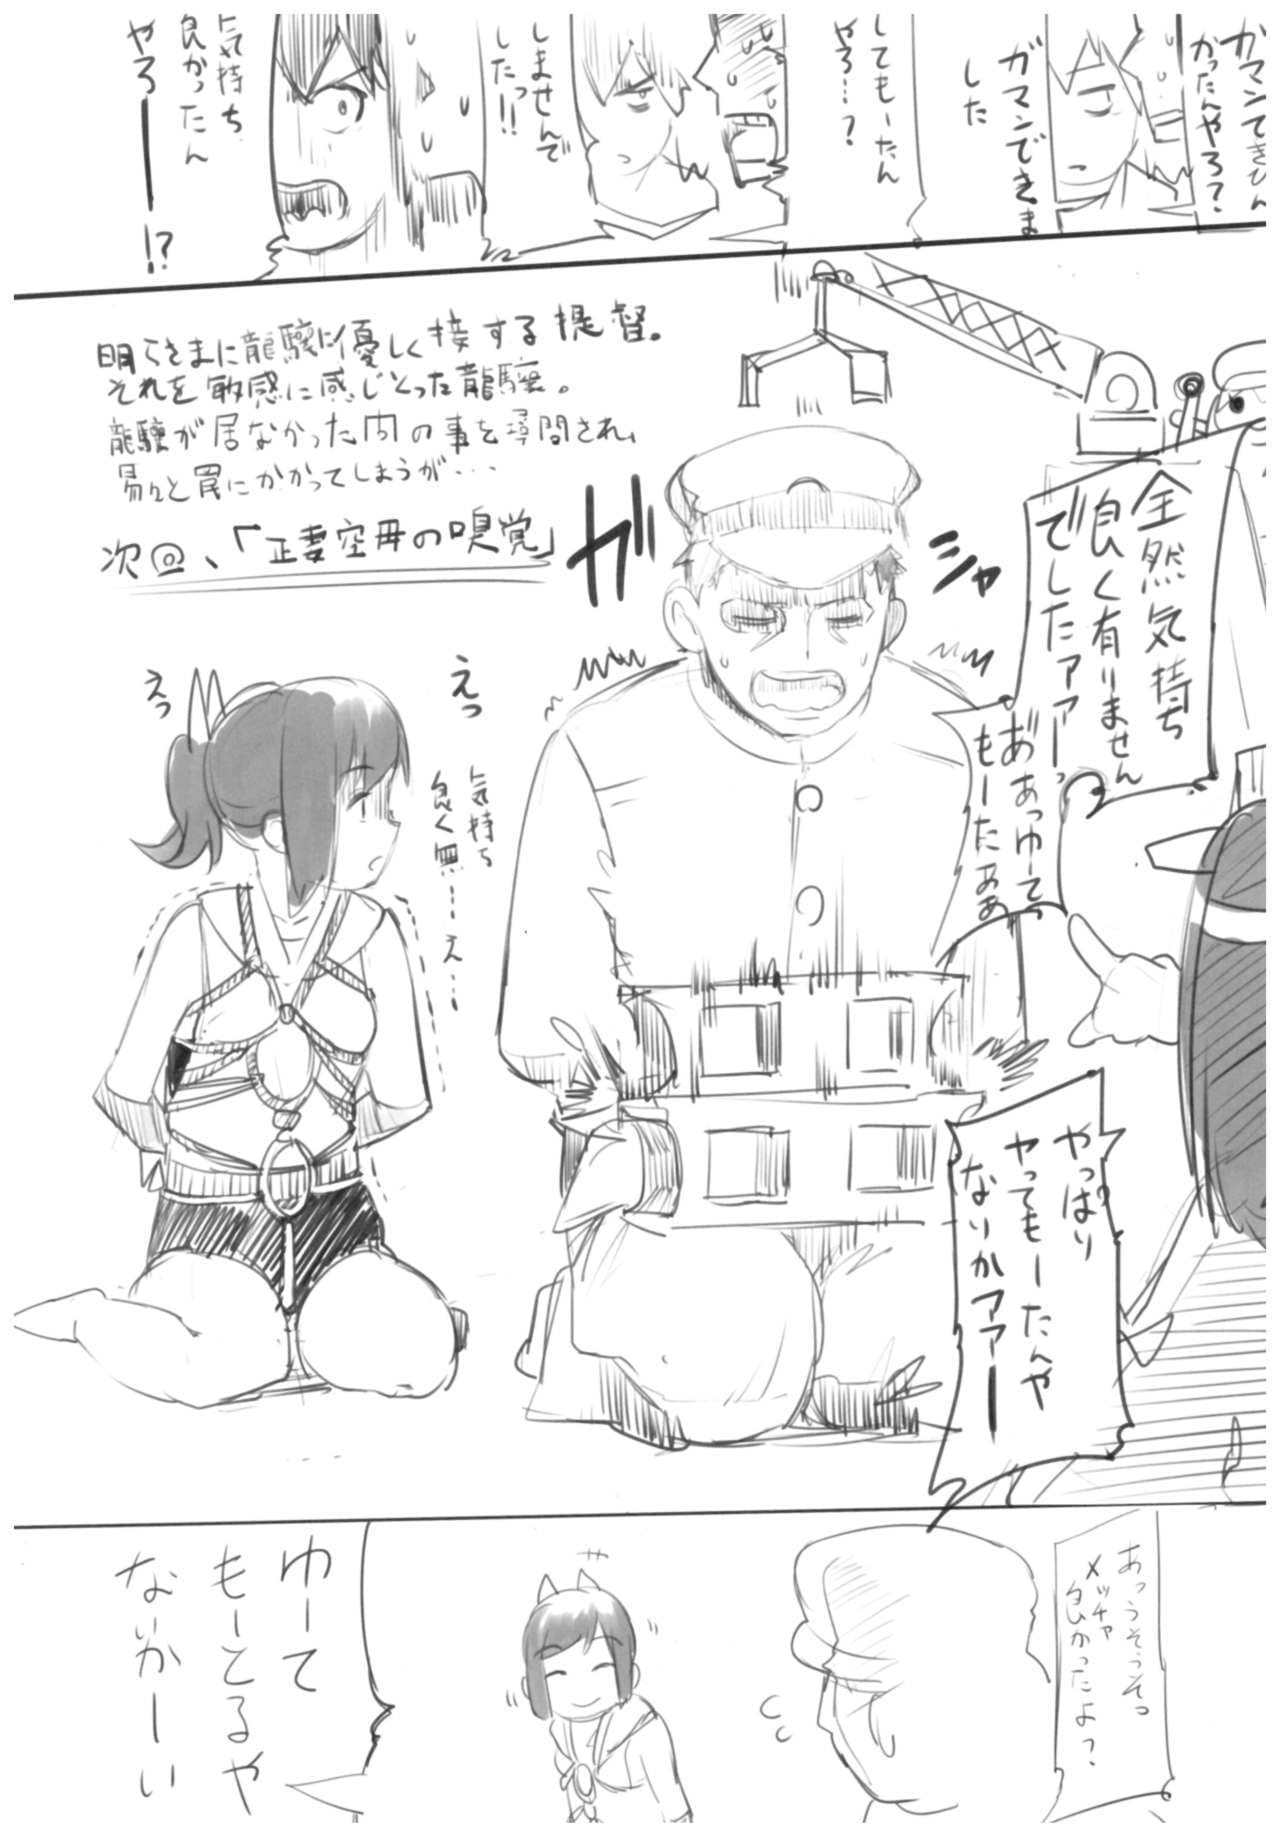 ガマンできひん
かったんやろ?
ガマンできま
した
してもーたん
やろ…?
しませんで
したっ!!
気持ち
良かったん
やろーー!?
明らさまに龍驤に優しく接する提督。
それを敏感に感じとった龍驤。
龍驤が居なかった間の事を尋問され、
易々と罠にかかってしまうが・・・
次回、「正妻空母の嗅覚」
ガ
シャ
全然気持ち
良く有りません
でしたァァーっ
あぁっゆーて
もーたぁぁ
えっ
えっ
気持ち
良く無ーーえー…
やっぱり
ヤってもーたんや
ないかァァー
あっうそうそっ
メッチャ
良かったよ?
ゆーて
もーとるや
ないかーい